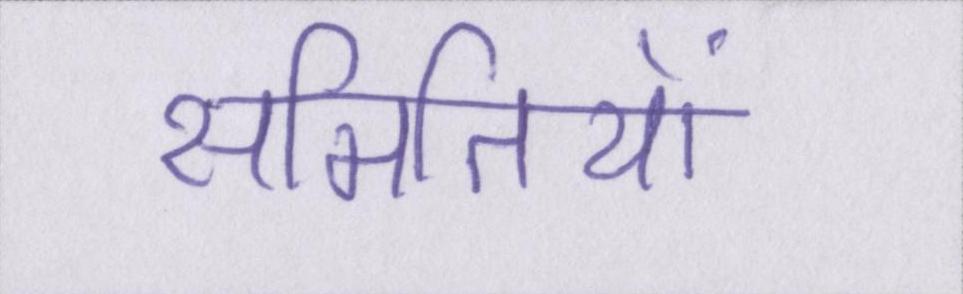 समितियों